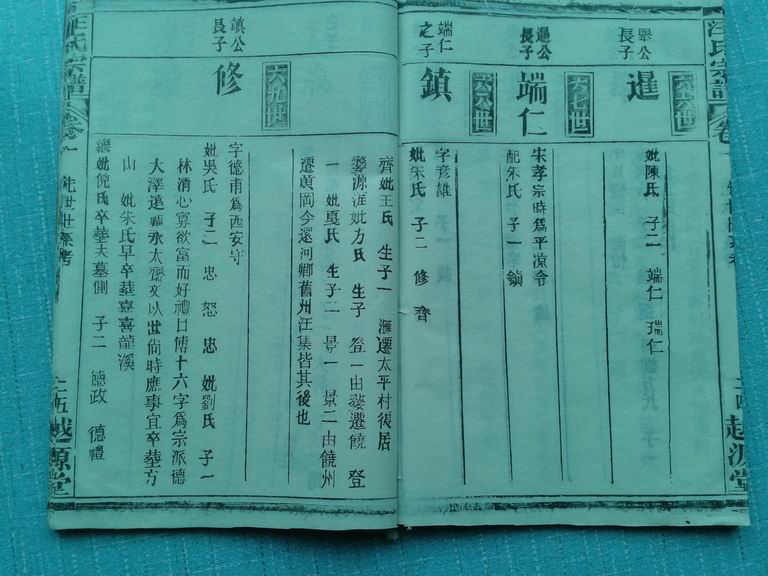 汪氏宗譜
卷一
越源堂
六六世
舉公
長子
暹
妣陳氏 子二 端仁 瑞仁
六七世
暹公
長子
端仁
宋孝宗時爲平涼令
配朱氏 子一 鎮
六八世
端仁
之子
鎮
字彦雄
妣朱氏 子二 修 齊
齊妣王氏 生子一 滙遷太平村後居
婺源淮妣方氏 生子 登一由婺遷饒 登
一 妣夏氏 生子二 景一 景二由饒州
遷黄岡今還河鄉舊州汪集皆其後也
六九世
鎮公
長子
修
字德甫爲西安守
妣吳氏 子二 忠 恕 忠 妣劉氏 子一
林清心寡欲富而好禮日傅十六字爲宗派德
大澤遠延永太齋文以世尚時應事宜卒塟方
山 妣朱氏早卒塟嘉喜龍溪
繼妣倪氏卒塟夫墓側 子二 德政 德禮
汪氏宗譜
卷一
先世世系考
越源堂